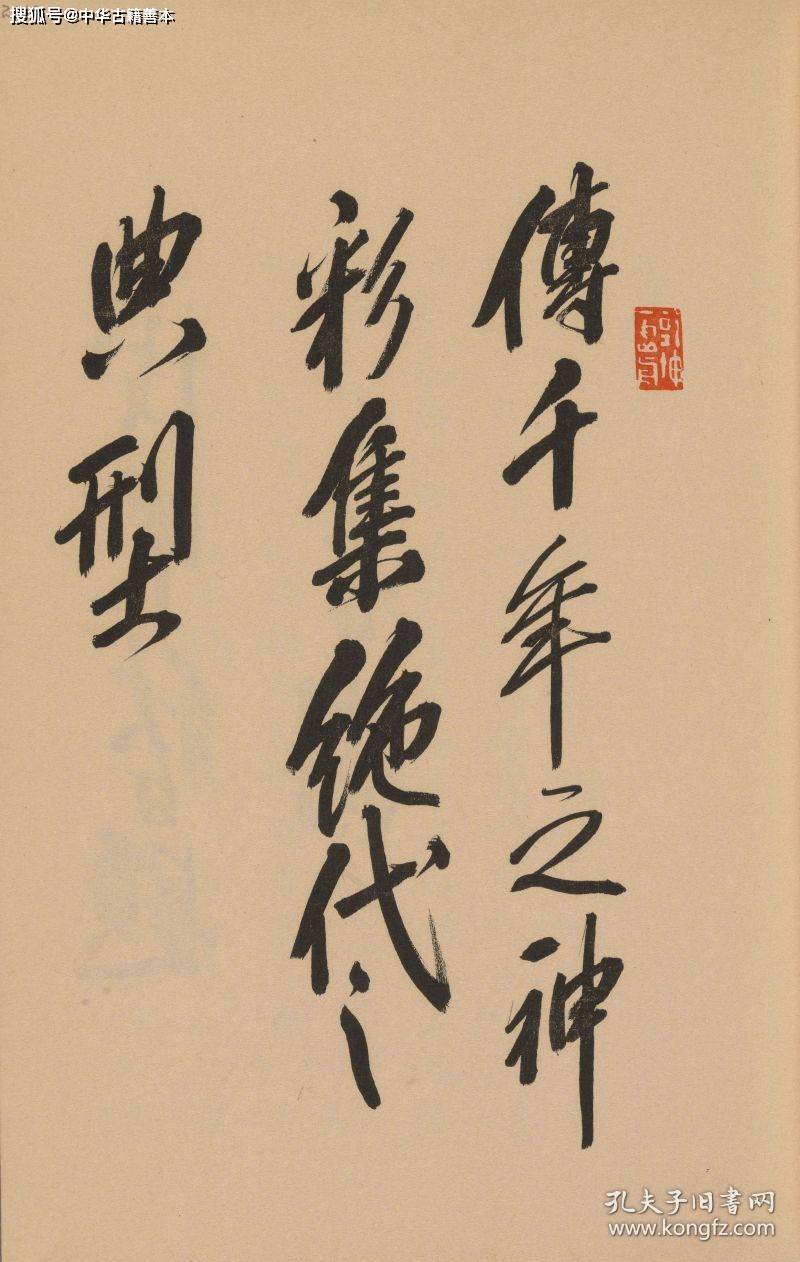 搜狐号@中华古籍善本
傳千年之神
彩集絶代之
典型
孔夫子旧书网
www.kongfz.com